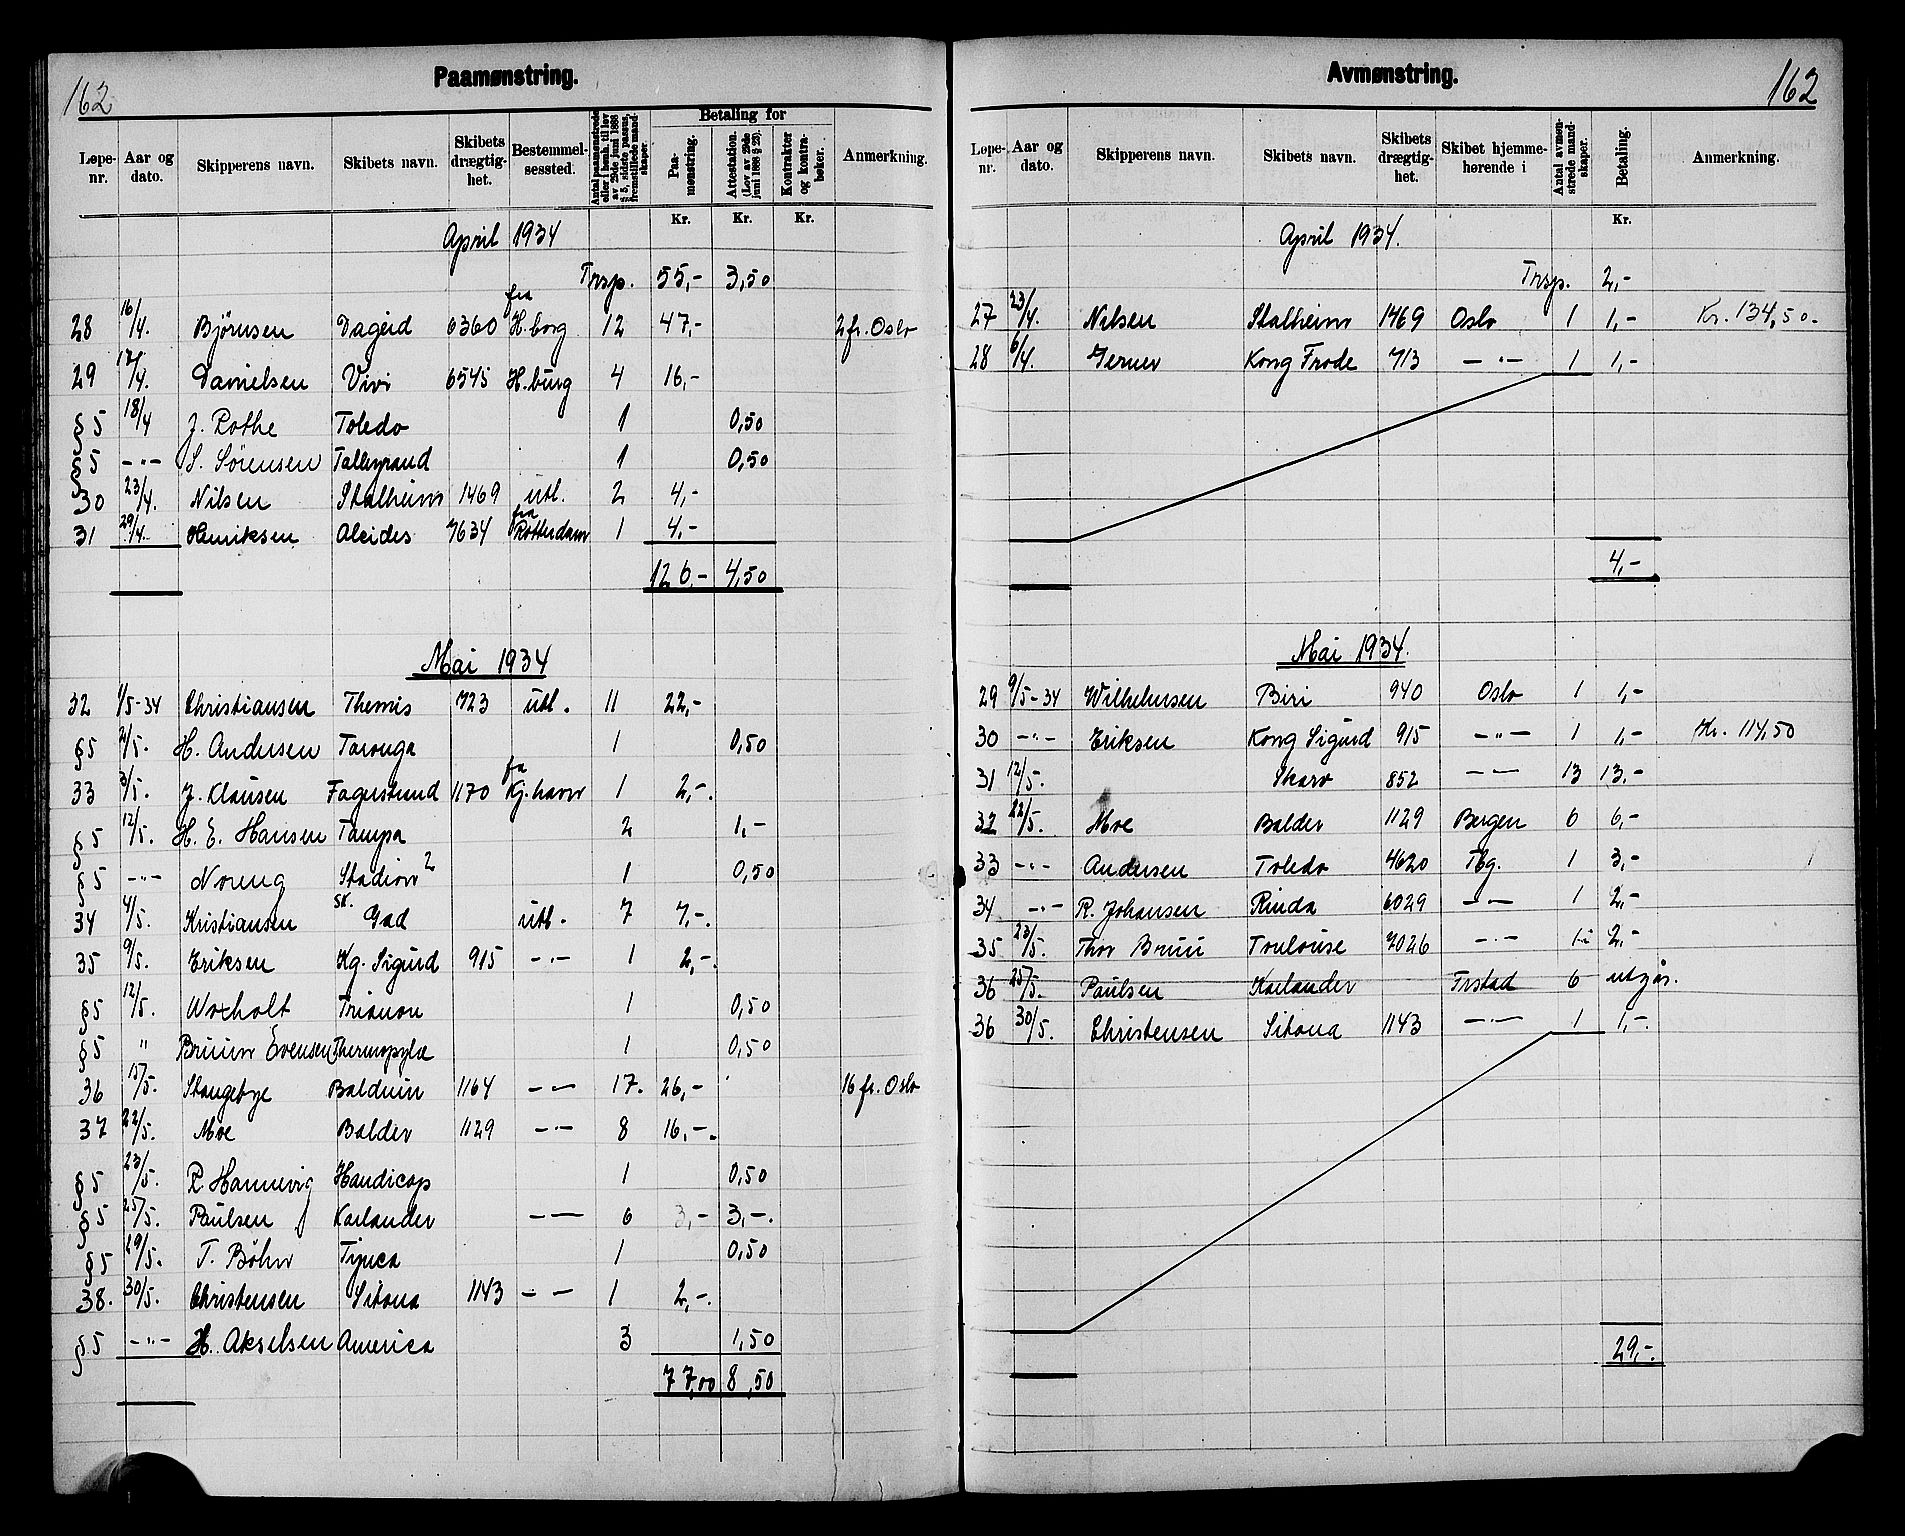 162
Paamønstring.
Løpe-nr. Aar og dato. Skipperens navn. Skibets navn. Skibets drægtig-het. Bestemmel-sessted. Antal paamønstrede eller i henh. til lov av 29de juni 1888 § 5, sidste passus, fremstillede mand-skaper. Betaling for Paa-mønstring. Attestation. (Lov av 29de juni 1888 § 23). Kontrakter og kontra-bøker. Anmerkning.
Kr. Kr. Kr.
April 1934
Trsp. 55,- 3,50
28 16/4. Bjørnsen Dageid 6360 fra H.borg 12 47,- 2 fr. Oslo
29 17/4. Danielsen Vivi 6545 H.burg 4 16,-
§5 18/4 J. Rothe Toledo 1 0,50
§5 -"- S. Sørensen Talleyrand 1 0,50
30 23/4. Nilsen Stalheim 1469 utl. 2 4,-
31 29/4. Henriksen Alcides 7634 fra Rotterdam 1 4,-
126,- 4,50
Mai 1934
32 1/5-34 Christiansen Themis 723 utl. 11 22,-
§5 2/5. H. Andersen Taronga 1 0,50
33 3/5. J. Klausen Fagersund 1170 fra Kj.havn 1 2,-.
§5 12/5. H. E. Hansen Tampa 2 1,-
§5 -"- Noreng Stadion 2 1 0,50
34 4/5. Kristiansen SK. Gad utl. 7 7,-.
35 9/5. Eriksen Kg. Sigurd 915 -"- 1 2,-.
§5 12/5. Woxholt Trianon 1 0,50
§5 " Bruun Evensen Thermopylæ 1 0,50
36 15/5. Stangebye Balduin 1164 -"- 17. 26,- 16 fr. Oslo
37 22/5. Moe Balder 1129 -"- 8 16,-.
§5 23/5. R. Hannevig Handicap 1 0,50
§5 25/5. Paulsen Karlander -"- 6 3,- 3,-.
§5 29/5. T. Böhn Tijuca 1 0,50
38. 30/5. Christensen Sitona 1143 -"- 1 2,-.
§5 -"- H. Akselsen America 3 1,50
77,00 8,50
Avmønstring.
162
Løpe-nr. Aar og dato. Skipperens navn. Skibets navn. Skibets drægtig-het. Skibet hjemme-hørende i Antal avmøn-strede mand-skaper. Betaling. Anmerkning.
Kr.
April 1934.
Trsp. 2,-
27 23/4. Nilsen Stalheim 1469 Oslo 1 1,- Kr. 134,50-
28 6/4. Kong Frode 713 -"- 1 1,-
4,-
Mai 1934.
29 9/5-34 Wilhelmsen Biri 940 Oslo 1 1,-
30 -"- Eriksen Kong Sigurd 915 -"- 1 1,- Kr. 114,50
31 12/5. Skarv 852 -"- 13 13,-
32 22/5. Moe Balder 1129 Bergen 6 6,-
33 -"- Andersen Toledo 4620 Tbg. 1 3,-
34 -"- R. Johansen Rinda 6029 -"- 1 2,-
35 23/5. Thor Bruu Toulouse 7026 -"- 1 2,-
36 25/5. Paulsen Karlander Frstad 6 utgår.
36 30/5. Christensen Sitona 1143 -"- 1 1,-.
29,-.